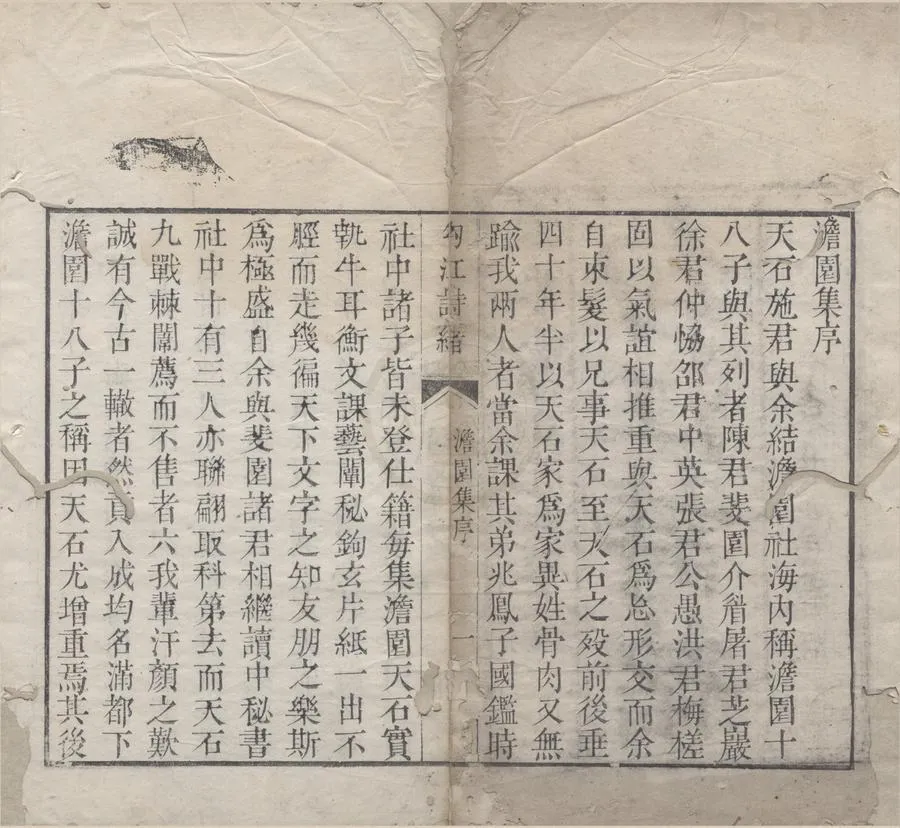 澹園集序
天石施君與余結澹園社海內稱澹園十
八子與其列者陳君斐園介眉屠君芝巖
徐君仲恊邵君中英張君公愚洪君梅槎
固以氣誼相推重與天石爲忘形交而余
自束髮以兄事天石至天石之歿前後垂
四十年半以天石家爲家異姓骨肉又無
踰我兩人者當余課其弟兆鳳子國鑑時
勾江詩緒
澹園集序
一
社中諸子皆未登仕籍每集澹園天石實
執牛耳衡文課藝闡秘鉤玄片紙一出不
脛而走幾徧天下文字之知友朋之樂斯
爲極盛自余與斐園諸君相繼讀中秘書
社中十有三人亦聯翩取科第去而天石
九戰棘闈薦而不售者六我輩汗顏之歎
誠有今古一轍者然貢入成均名滿都下
澹園十八子之稱因天石尤增重焉其後